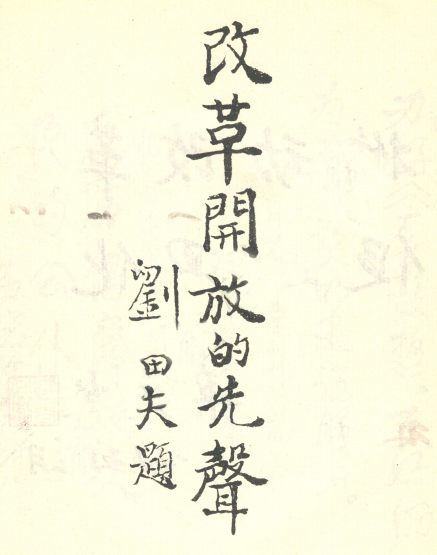 改革開放的先聲
劉田夫題